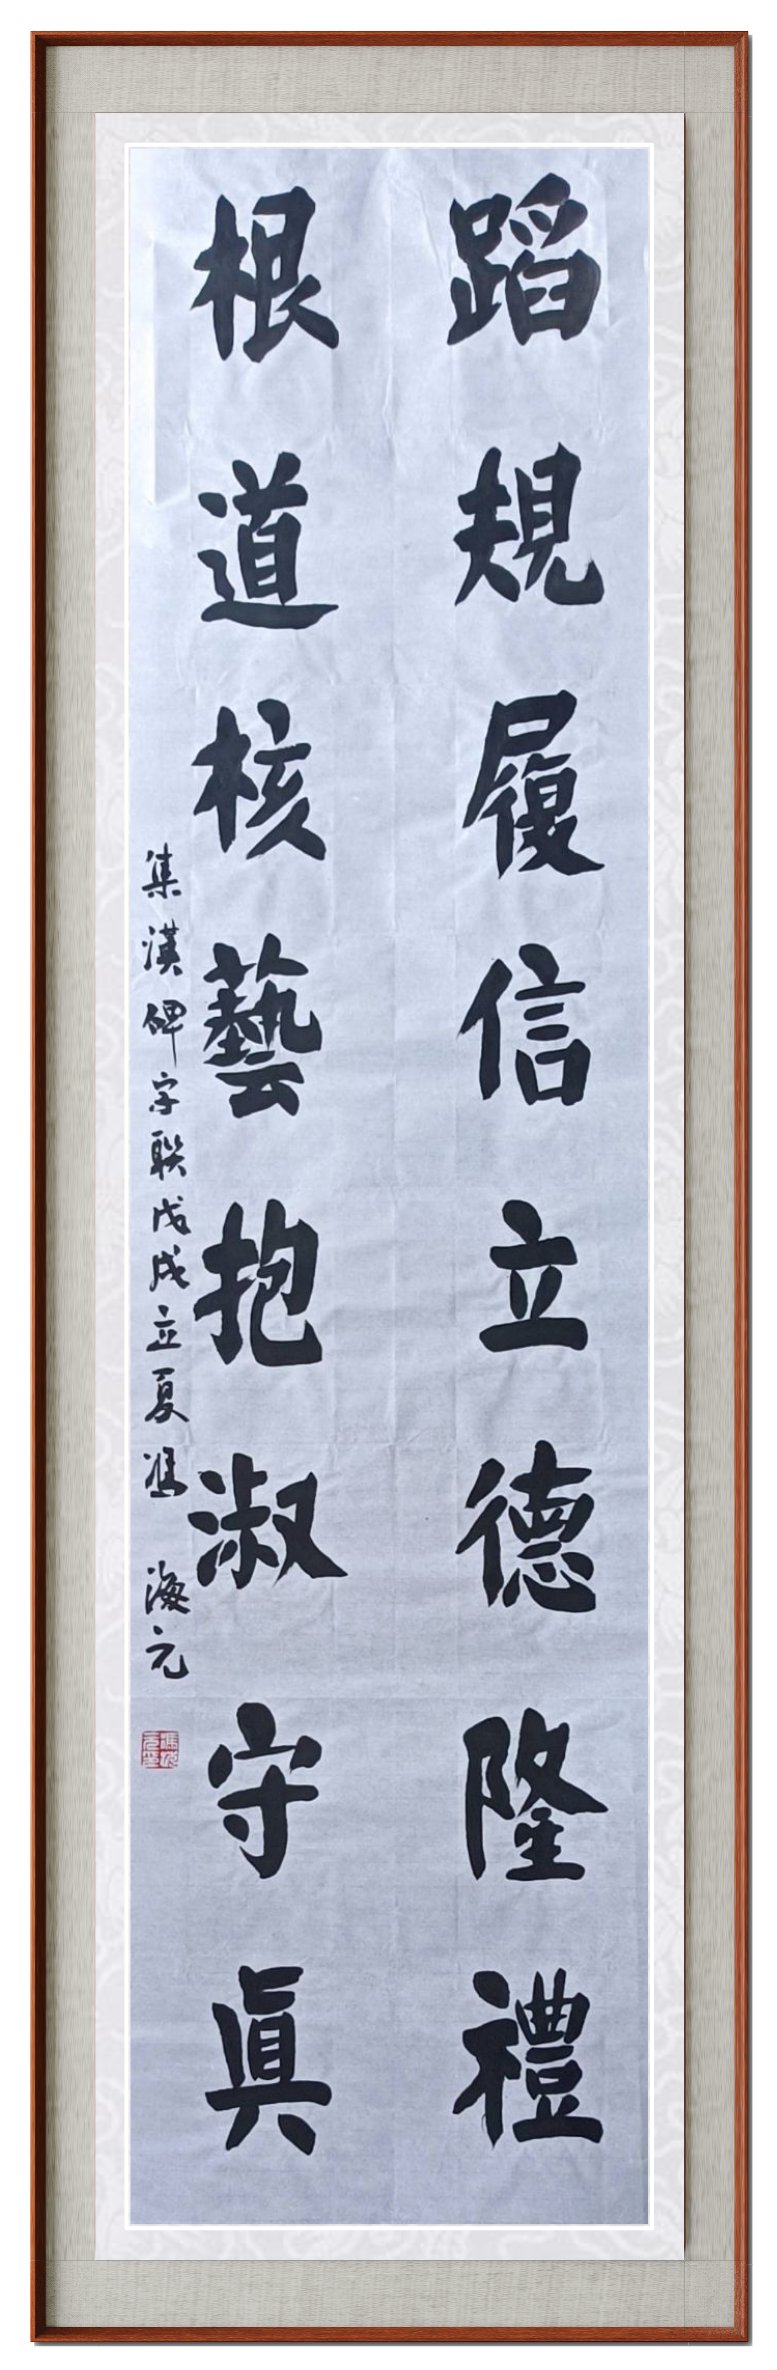 蹈規履信立德隆禮
根道核藝抱淑守眞
集漢碑字聯戊戌立夏馮海元